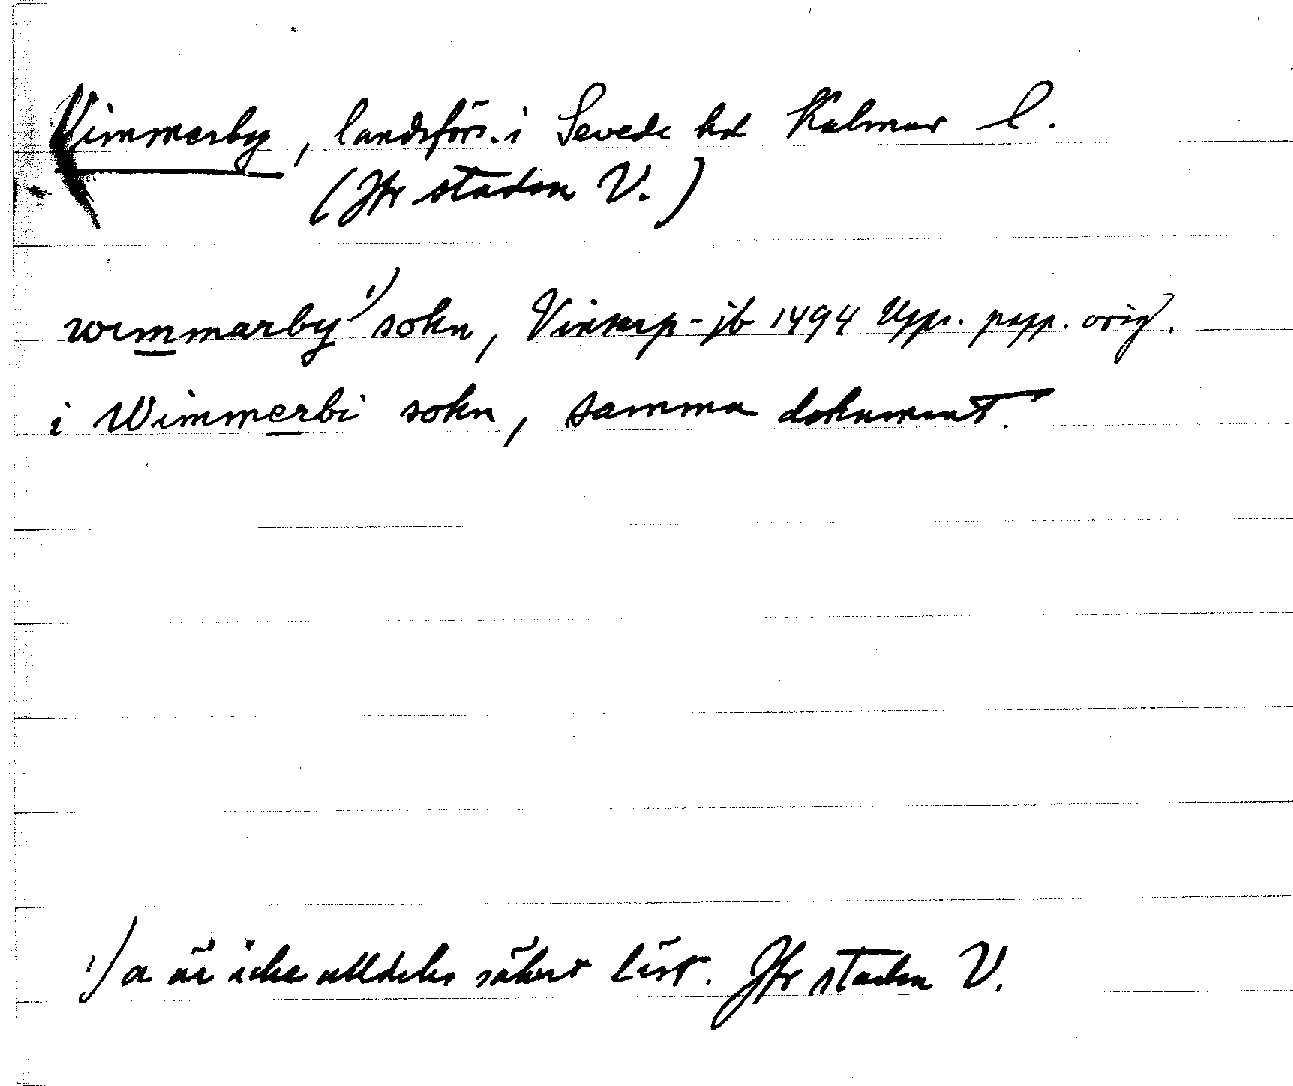 Vimmerby, landsförs. i Sevede hd Kalmar l.
(Jfr staden V.)
wimmarby 1) sokn, Vinstorp-jb 1494 Upps. papp. orig.
i Wimmerbi sokn, samma dokument.
1) a är icke alldeles säkert läst. Jfr staden V.